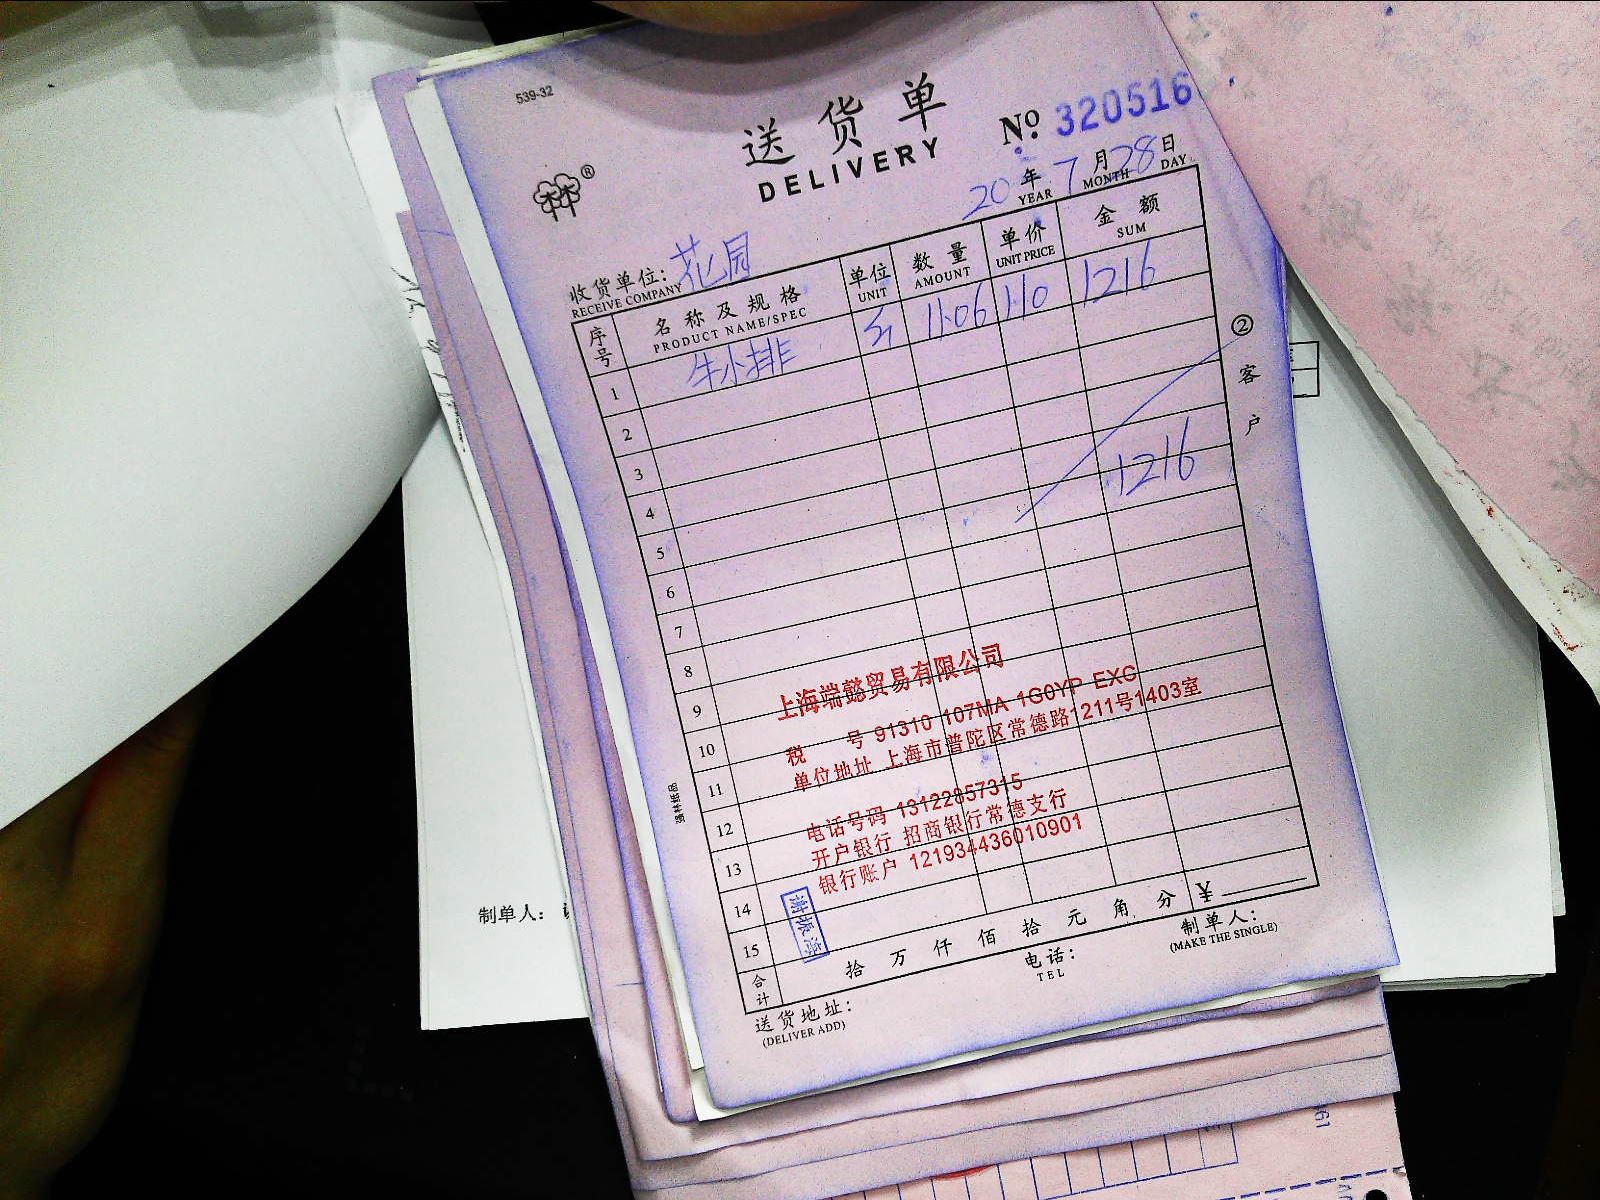 539-32
送货单
DELIVERY
№ 320516
20 年 7 月 28 日
YEAR MONTH DAY
®
收货单位: 花园
RECEIVE COMPANY
序号 名称及规格 单位 数量 单价 金额
PRODUCT NAME/SPEC UNIT AMOUNT UNIT PRICE SUM
1 牛小排 11.06 110 1216
2
3
4 1216
5
6
7
8
9
10
11
12
13
14
15
②客户
上海端懿贸易有限公司
税 号 91310 107MA 1G0YP EXC
单位地址 上海市普陀区常德路1211号1403室
电话号码 13122857315
开户银行 招商银行常德支行
银行账户 121934436010901
合计 拾 万 仟 佰 拾 元 角 分 ¥
送货地址:
(DELIVER ADD)
电话:
TEL
制单人:
(MAKE THE SINGLE)
制单人: